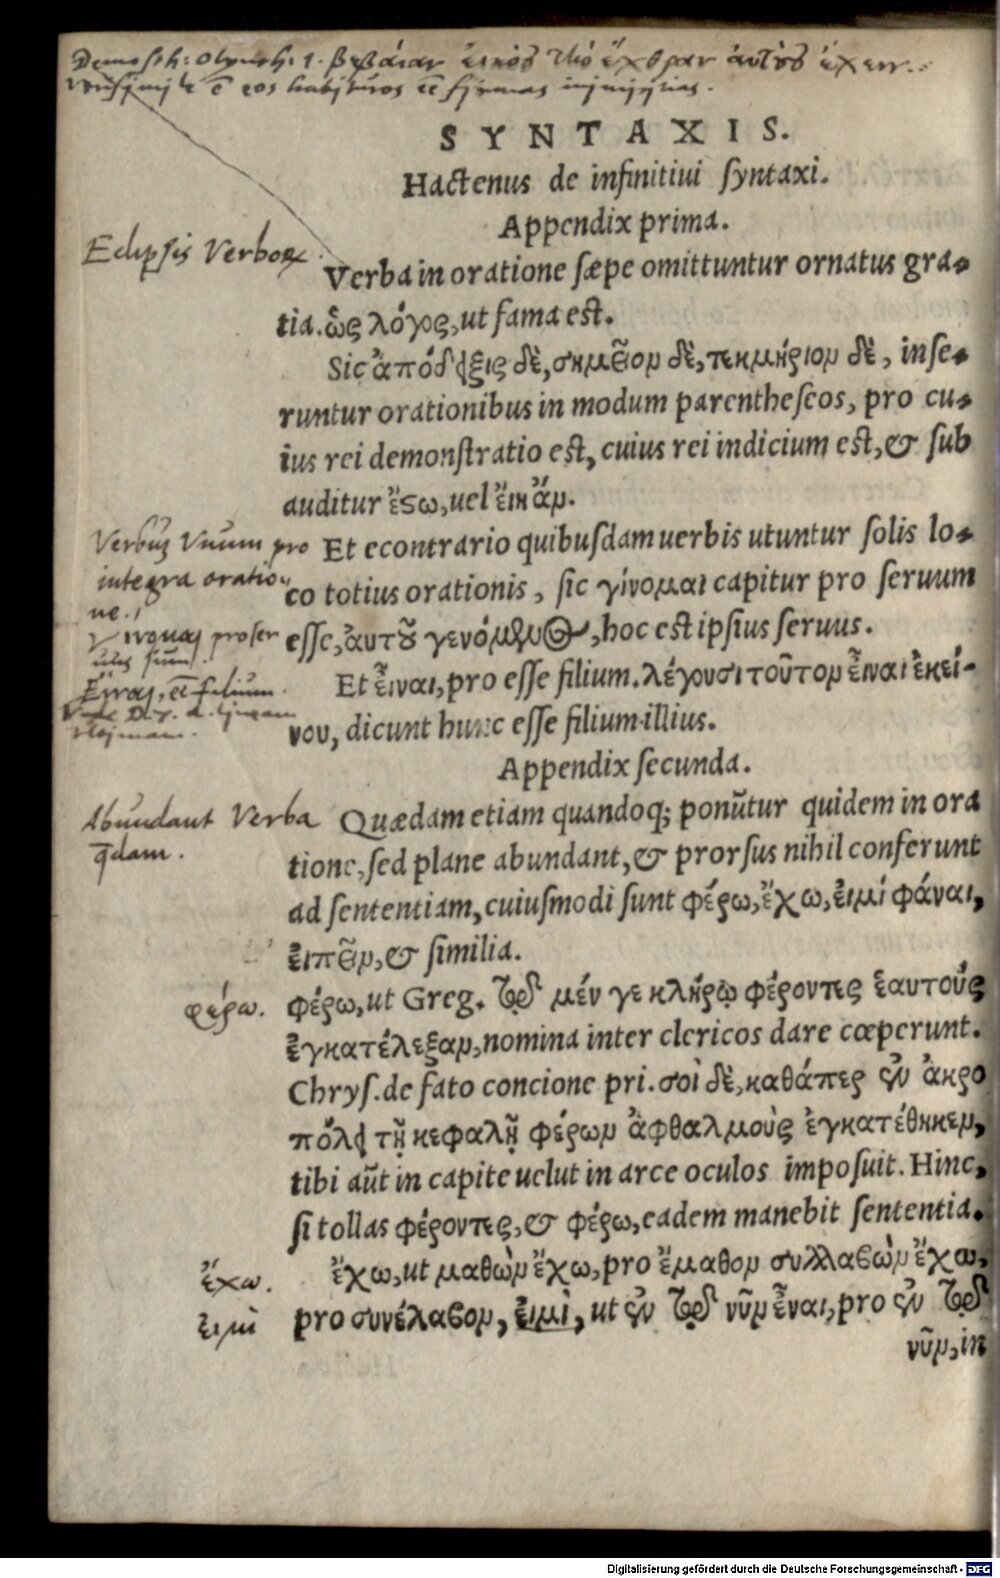 Demosth: Olynth: 1. βεβαίαν εἰκὸς τὴν ἔχθραν αὐτοὺς ἔχειν.
SYNTAXIS.
Hactenus de infinitiui ſyntaxi.
Appendix prima.
Eclipsis Verborꝝ
Verba in oratione ſæpe omittuntur ornatus gra-
tia. ὡς λόγος, ut fama eſt.
Sic ἀπόδειξις δὲ, σημεῖον δὲ, τεκμήριον δὲ, inſe-
runtur orationibus in modum parentheſeos, pro cu-
ius rei demonſtratio eſt, cuius rei indicium eſt, & ſub
auditur ἔςω, uel εἴη ἂν.
Verbũ Vnum pro
integra oratio-
ne.
Et econtrario quibuſdam uerbis utuntur ſolis lo-
co totius orationis, ſic γίνομαι capitur pro ſeruum
eſſe, ἀυτοῦ γενόμενος, hoc eſt ipſius ſeruus.
γινομαι pro ser
uus sum.
Εἶναι, eẽ filium.
Et εἶναι, pro eſſe filium. λέγουσι τοῦτον εἶναι ἐκεί-
νου, dicunt hunc eſſe filium illius.
Appendix ſecunda.
Abundant Verba
q̃dam.
Quædam etiam quandoq; ponũtur quidem in ora
tione, ſed plane abundant, & prorſus nihil conferunt
ad ſententiam, cuiuſmodi ſunt φέρω, ἔχω, εἰμί φάναι,
εἰπεῖν, & ſimilia.
φέρω.
φέρω, ut Greg. τῷδε μέν γε κλήρῳ φέροντες ἑαυτοὺς
ἐγκατέλεξαν, nomina inter clericos dare cœperunt.
Chryſ. de fato concione pri. σοὶ δὲ, καθάπερ ἐν ἀκρο
πόλει τῇ κεφαλῇ φέρων ἀφθαλμοὺς ἐγκατέθηκεν,
tibi aũt in capite uelut in arce oculos impoſuit. Hinc,
ſi tollas φέροντες, & φέρω, eadem manebit ſententia.
ἔχω.
ἔχω, ut μαθὼν ἔχω, pro ἔμαθον συλλαβὼν ἔχω,
εἰμὶ
pro συνέλαβον, εἰμὶ, ut ἐν τῷδε νῦν εἶναι, pro ἐν τῷδε
νῦν, in
Digitalisierung gefördert durch die Deutsche Forschungsgemeinschaft - DFG